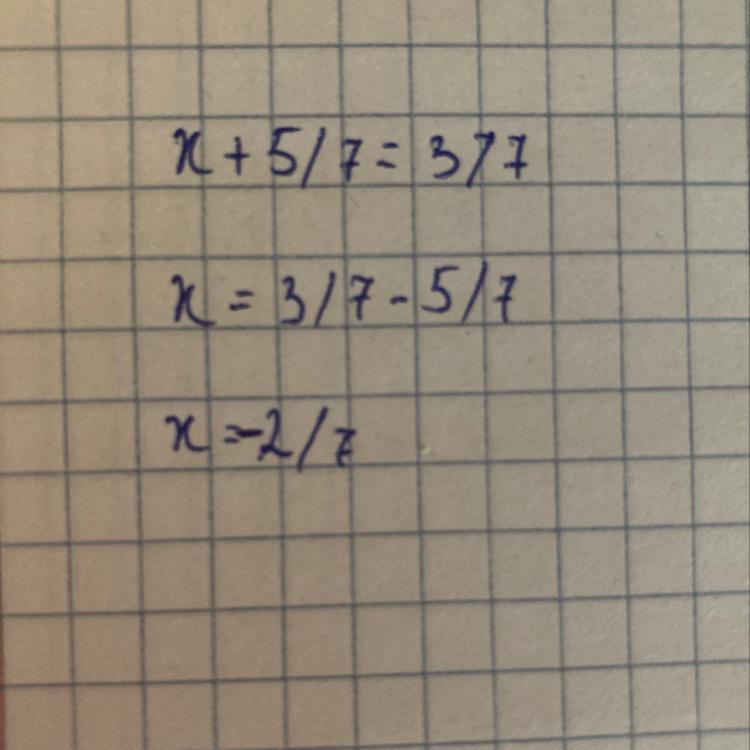 x + 5/7 = 3/7
x = 3/7 - 5/7
x = -2/7